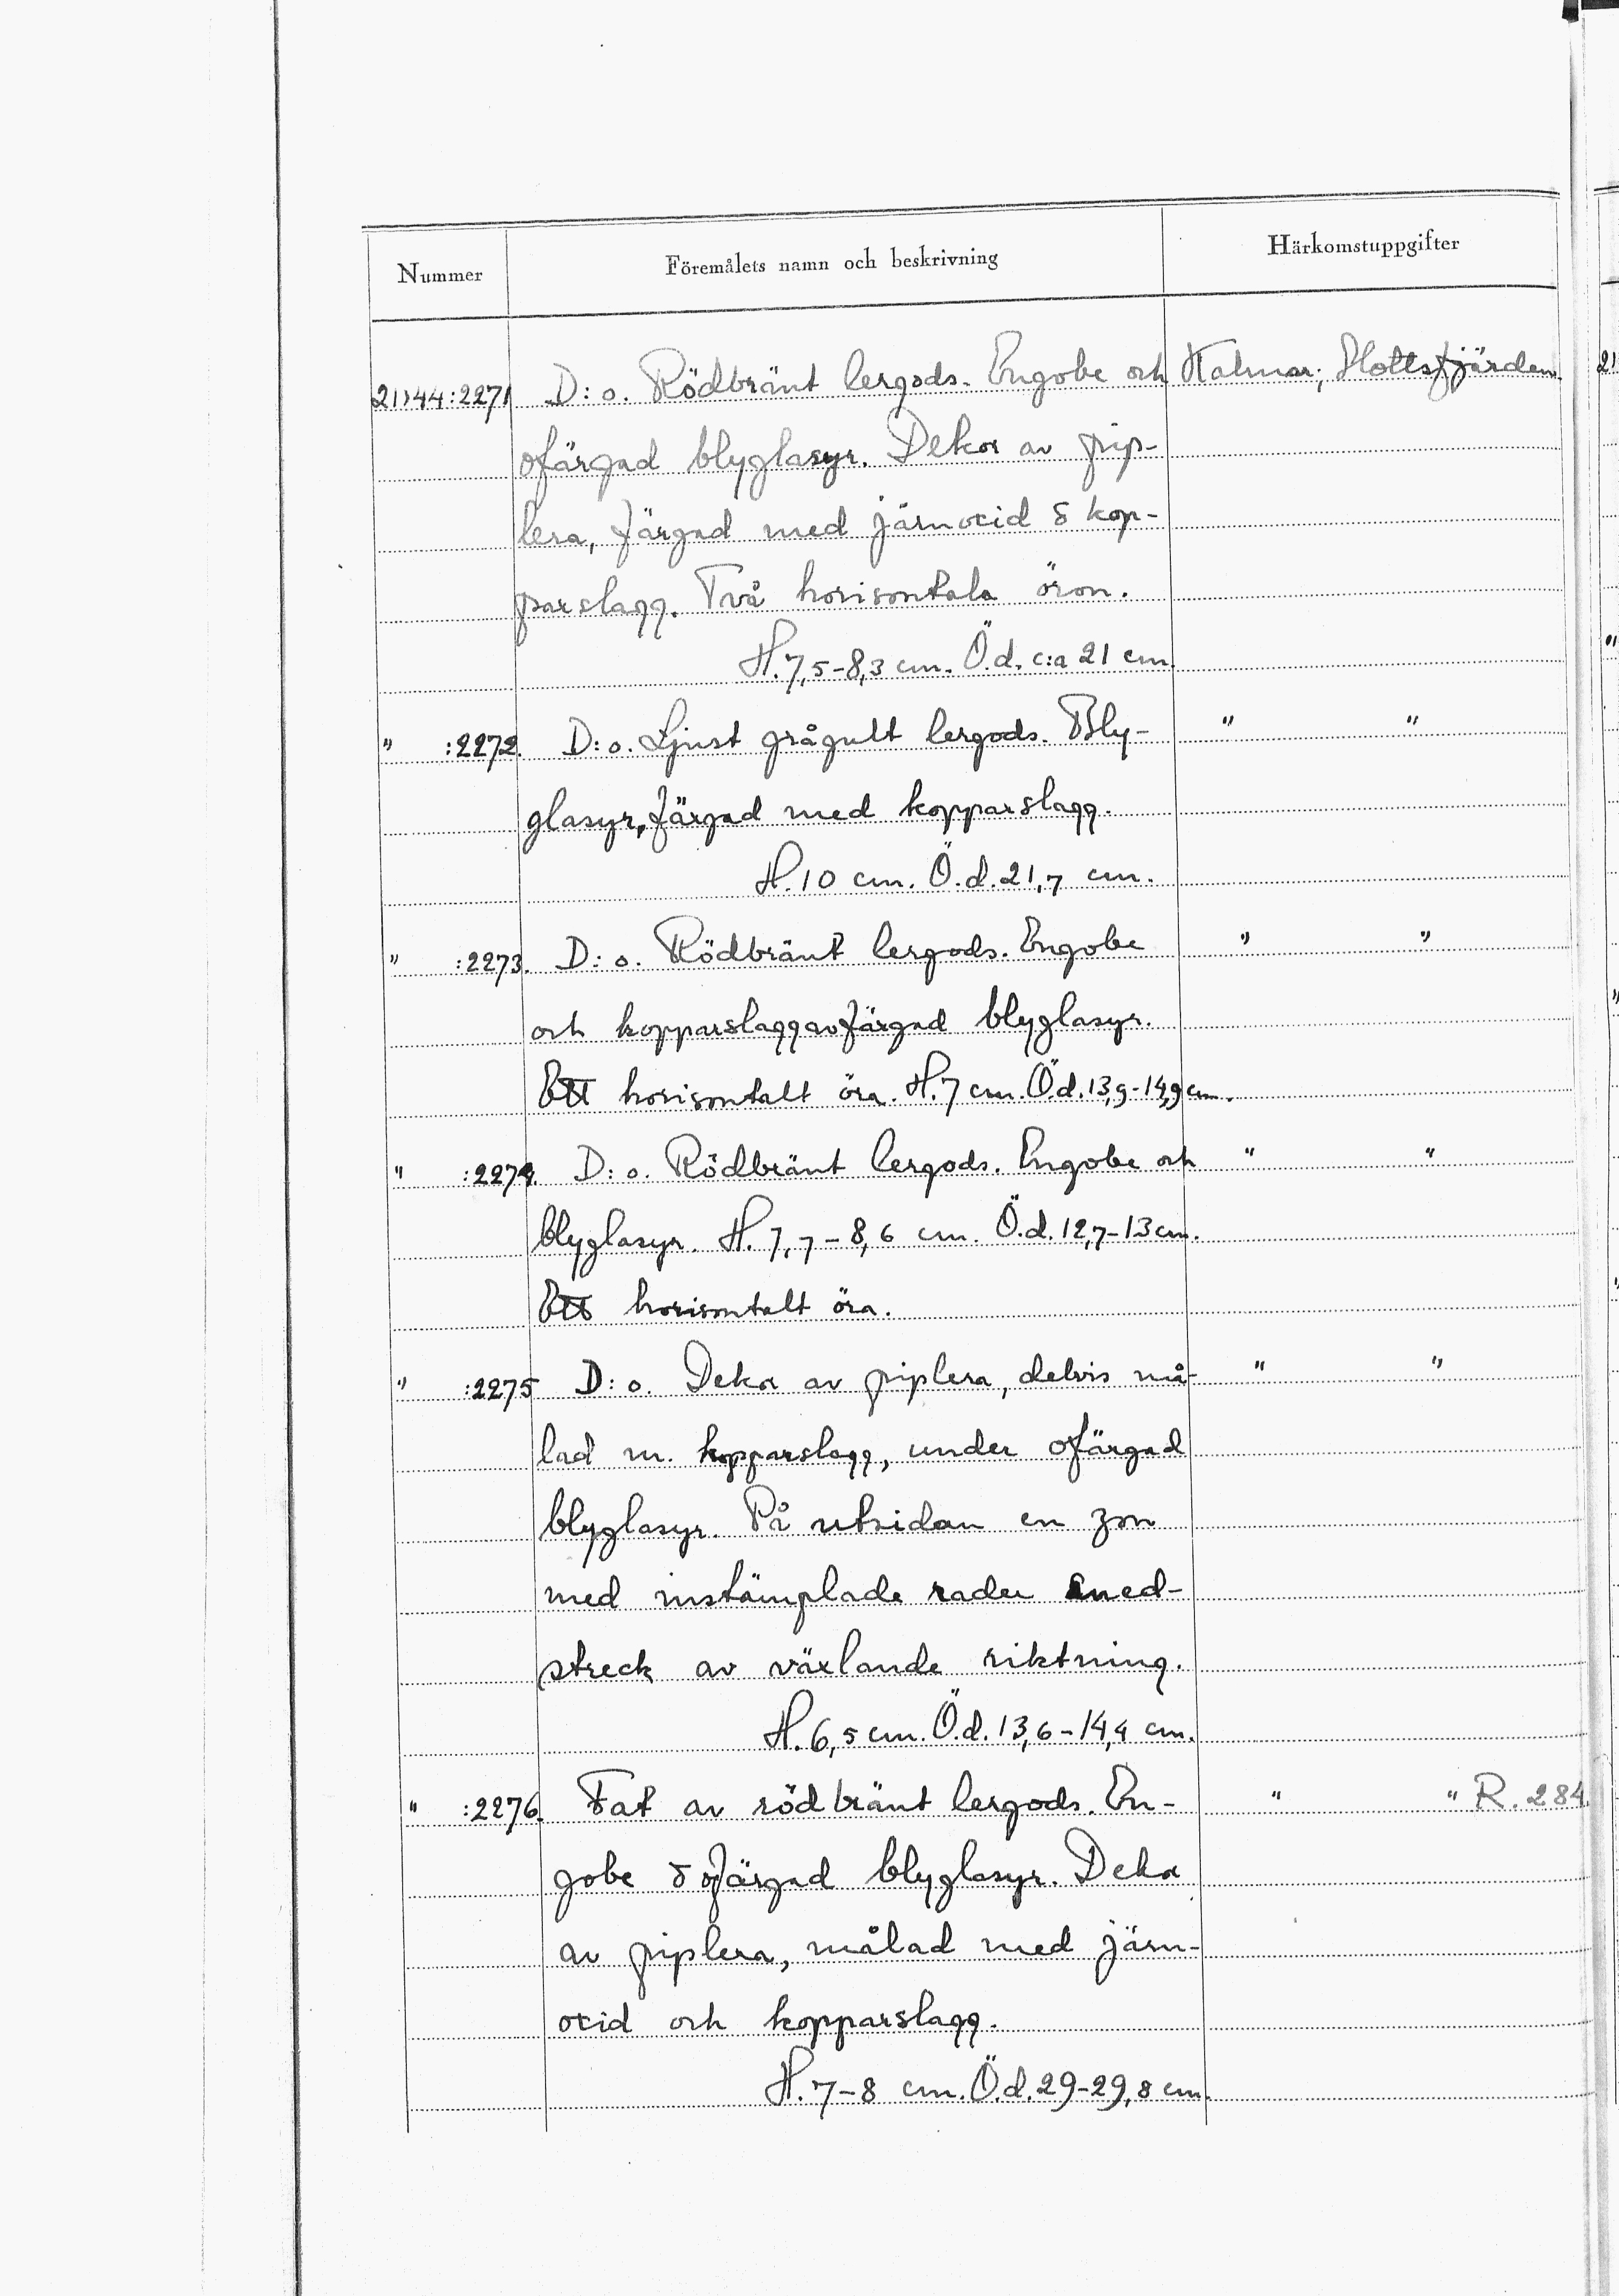 Nummer Föremålets namn och beskrivning Härkomstuppgifter
21144:2271 D:o. Rödbränt lergods. Engobe och Kalmar, Slottsfjärden.
ofärgad blyglasyr. Dekor av pip-
lera, färgad med järnoxid o kop-
parslagg. Två horisontala öron.
H. 7,5-8,3 cm. Ö.d. c:a 21 cm.
" :2272. D:o. Ljust grågult lergods. Bly- " "
glasyr, färgad med kopparslagg.
H. 10 cm. Ö.d. 21,7 cm.
" :2273. D:o. Rödbränt lergods. Engobe " "
och kopparslaggavfärgad blyglasyr.
Ett horisontalt öra. H. 7 cm. Ö.d. 13,9-14,9 cm.
" :2274. D:o. Rödbränt lergods. Engobe och " "
blyglasyr. H. 7,7-8,6 cm. Ö.d. 12,7-13 cm.
Ett horisontalt öra.
" :2275 D:o. Dekor av piplera, delvis må- " "
lad m. kopparslagg, under ofärgad
blyglasyr. På utsidan en zon
med instämplade rader sned-
streck av växlande riktning.
H. 6,5 cm. Ö.d. 13,6-14,4 cm.
" :2276. Fat av rödbränt lergods. En- " " R. 284.
gobe o ofärgad blyglasyr. Dekor
av piplera, målad med järn-
oxid och kopparslagg.
H. 7-8 cm. Ö.d. 29-29,8 cm.